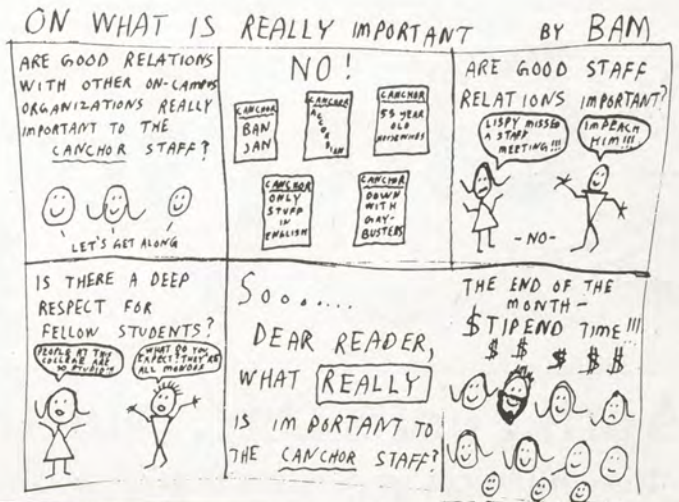 ON WHAT IS REALLY IMPORTANT BY BAM
ARE GOOD RELATIONS
WITH OTHER ON-CAMPUS
ORGANIZATIONS REALLY
IMPORTANT TO THE
CANCHOR STAFF?
LET'S GET ALONG
NO!
CANCHOR
BAN
JAN
CANCHOR
ACCORDIAN
CANCHOR
55 YEAR
OLD
HOUSEWIVES
CANCHOR
ONLY
STUFF
IN
ENGLISH
CANCHOR
DOWN
WITH
GAY-
BUSTERS
ARE GOOD STAFF
RELATIONS IMPORTANT?
LISPY MISSED
A STAFF
MEETING!!!
IMPEACH
HIM!!!
-NO-
IS THERE A DEEP
RESPECT FOR
FELLOW STUDENTS?
PEOPLE AT THIS
COLLEGE ARE
SO STUPID!!
WHAT DO YOU
EXPECT? THEY'RE
ALL
Soo......
DEAR READER,
WHAT REALLY
IS IMPORTANT TO
THE CANCHOR STAFF?
THE END OF THE
MONTH-
$TIPEND TIME!!!
$ $ $ $ $